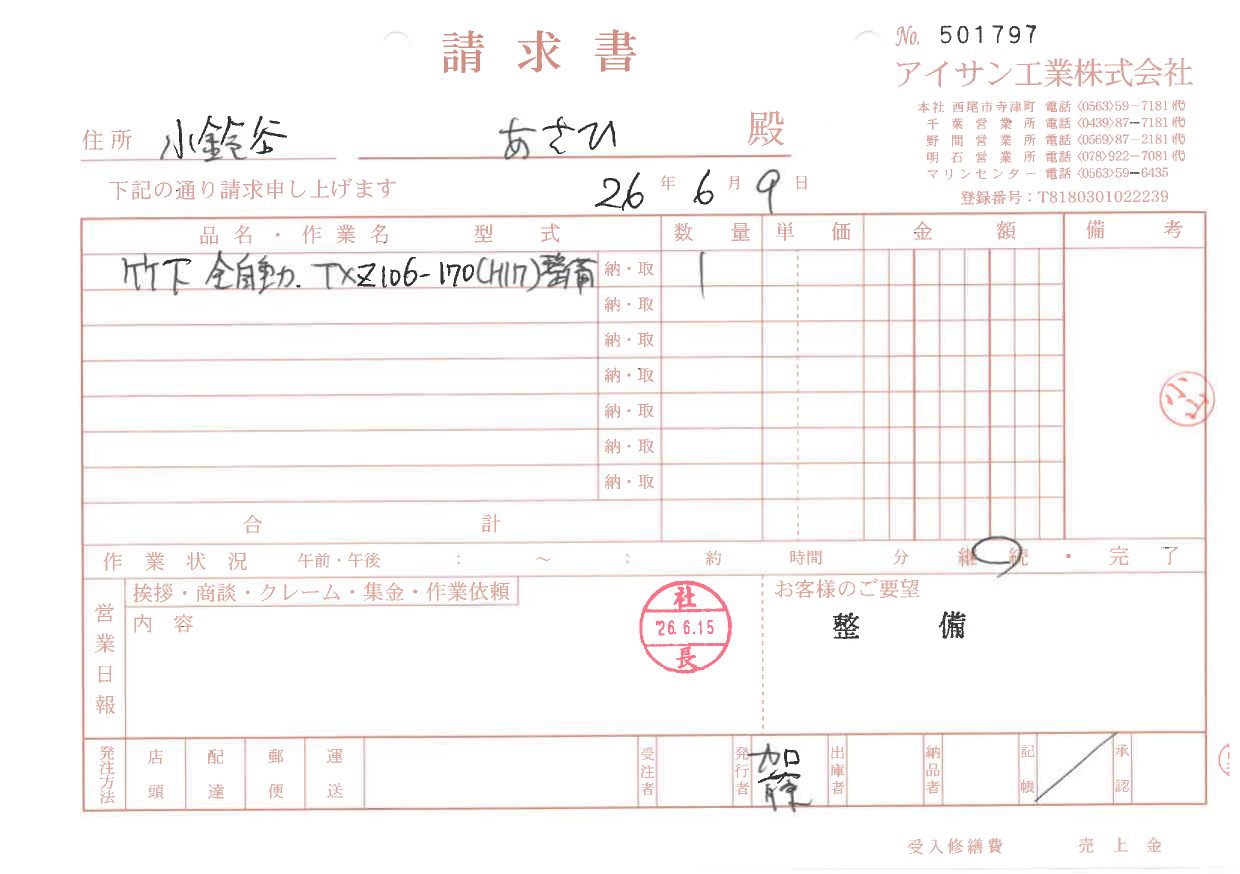 請求書
No. 501797
アイサン工業株式会社
本社 西尾市寺津町 電話〈0563〉59-7181㈹
千葉営業所 電話〈0439〉87-7181㈹
野間営業所 電話〈0569〉87-2181㈹
明石営業所 電話〈078〉922-7081㈹
マリンセンター 電話〈0563〉59-6435
登録番号:T8180301022239
住所 小鈴谷 あさひ 殿
下記の通り請求申し上げます 26年6月9日
品名・作業名 型式 数量 単価 金額 備考
竹下 全自動. TXZ106-170(H17)整備 納・取 1
納・取
納・取
納・取
納・取
納・取
納・取
合計
作業状況 午前・午後 : ~ : 約 時間 分 継続・完了
営業日報
挨拶・商談・クレーム・集金・作業依頼
内容
社
'26.6.15
長
お客様のご要望
整備
発注方法 店頭 配達 郵便 運送 受注者 発行者 加藤 出庫者 納品者 記帳 承認
受入修繕費 売上金